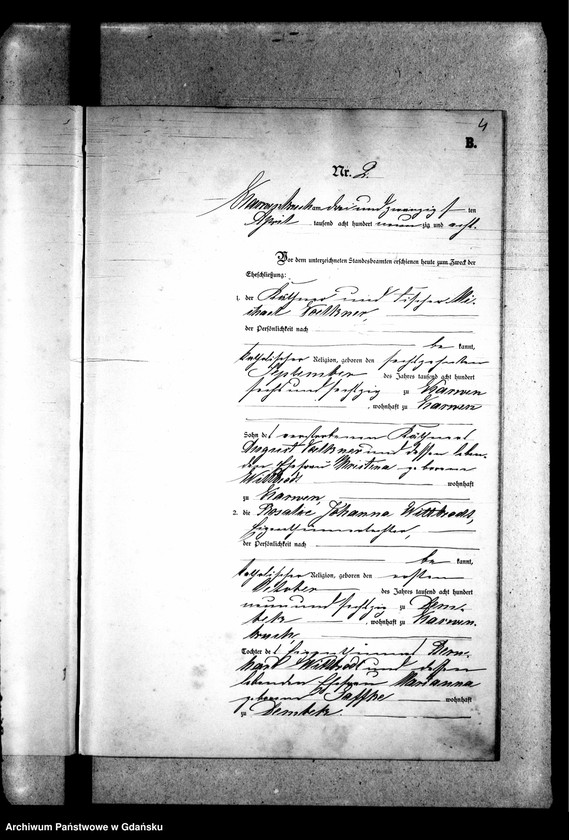 4
B.
Nr. 2.
Karwenbruch am drei und zwanzig sten
April tausend acht hundert neunzig und acht.
Vor dem unterzeichneten Standesbeamten erschienen heute zum Zweck der
Eheschließung:
1. der Käthner und Fischer Mi-
chael Voelkner,
der Persönlichkeit nach
be kannt,
katholischer Religion, geboren den sechszehnten
September des Jahres tausend acht hundert
sechs und sechzig zu Karwen
, wohnhaft zu Karwen
Sohn des verstorbenen Käthners
August Voelkner und dessen leben-
den Ehefrau Christina geborene
Wittbrodt wohnhaft
zu Karwen,
2. die Rosalie Johanna Wittbrodt,
Eigenthümertochter,
der Persönlichkeit nach
be kannt,
katholischer Religion, geboren den ersten
October des Jahres tausend acht hundert
neun und sechzig zu Dem-
bek , wohnhaft zu Karwen-
bruch,
Tochter des Eigenthümers Bern-
hard Wittbrodt und dessen
lebenden Ehefrau Marianna
geborene wohnhaft
zu Dembek.
Archiwum Państwowe w Gdańsku